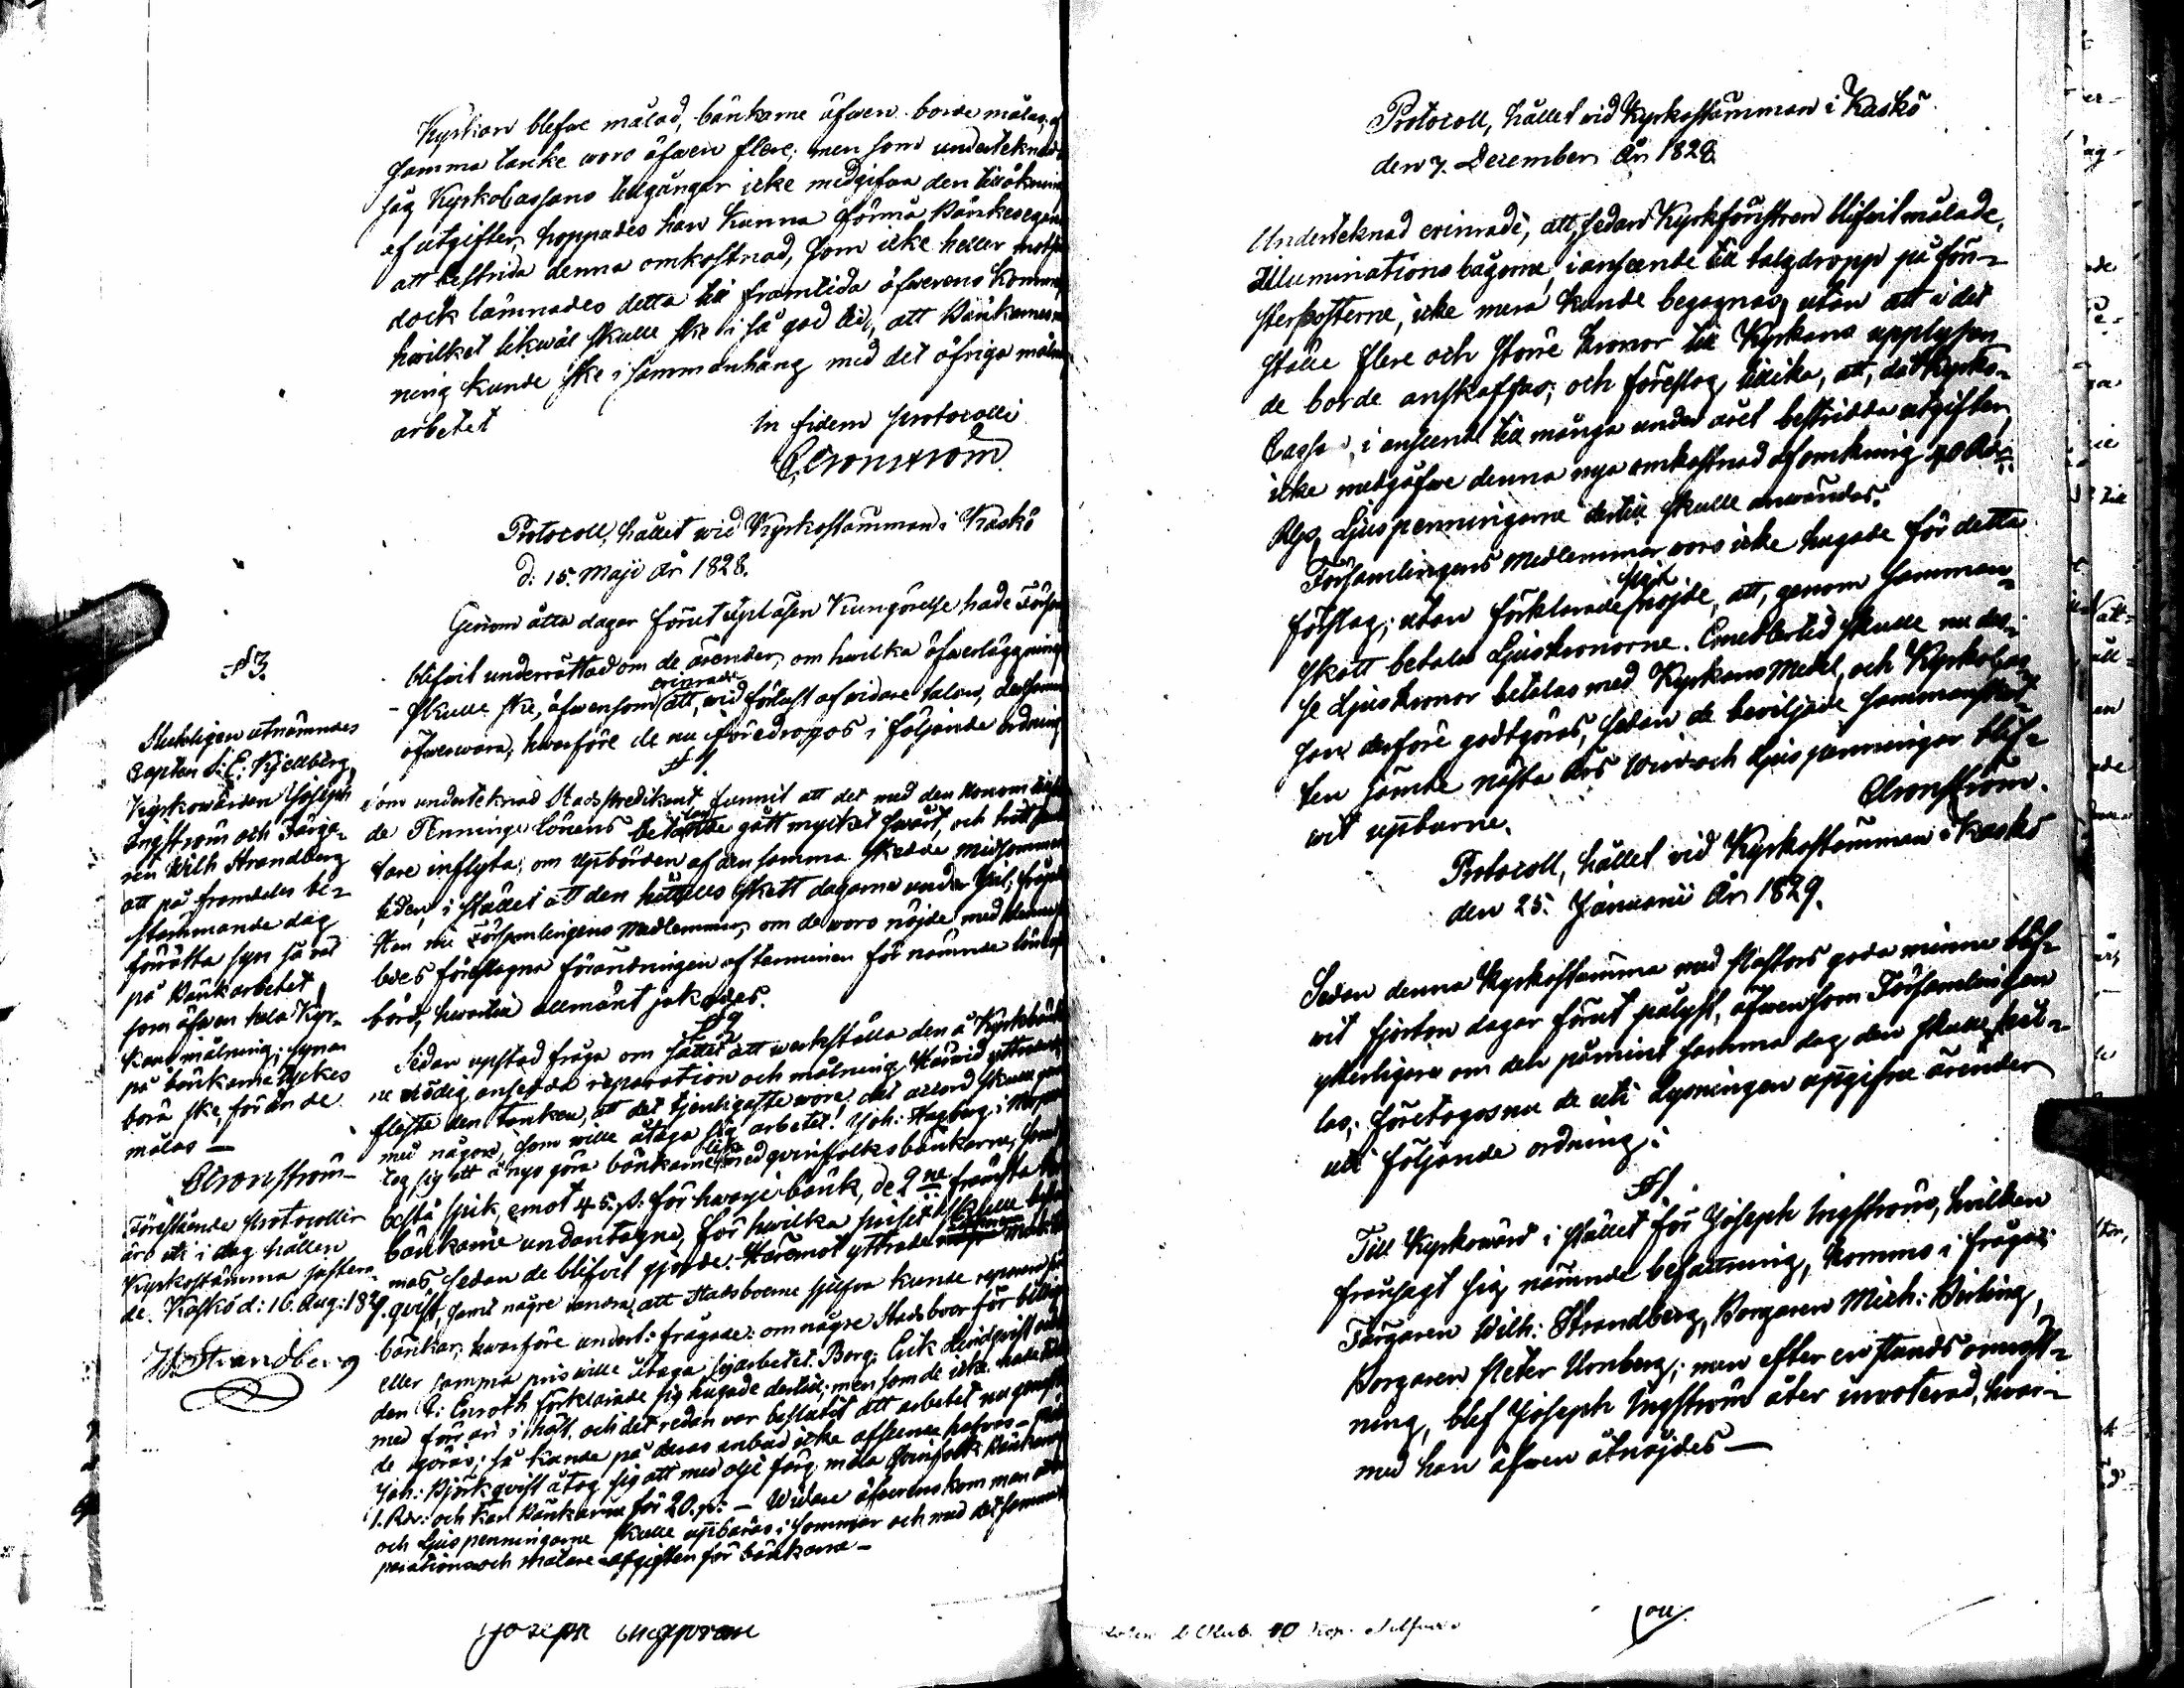 Kyrkan blefve målad, bänkarne äfwen borde målas, af
samma tanke woro äfwen flere; men som undertecknad
såg Kyrkocassans tillgångar icke medgifva den tillökning
af utgifter, hoppades han kunna förmå Bänkesegarne
att bestrida denna omkostnad, som icke heller
dock lämnades detta till framtida öfwerens komm
hwilket likwäl skulle ske i så god tid, att Bänkarnes
ning kunde ske i sammanhang med det öfriga
arbetet
In fidem protocolli
C. Cronström
Protocoll, hållet wid Kyrkostämman i Kaskö
d: 15. Maji år 1828.
Genom åtta dagar förut uplåsen Kungörelse hade
blifvit underrättad om de ärender, om hwilka öfwerläggning
skulle ske, äfwensom erinrade att, wid förlust af widare talan, dersamma
öfwerwara; hwarföre de nu föredrogos i följande ordning
§ 1
Som undertecknad Stadspredikant funnit att det med den honom
de Penninge Lönens betalande gått mycket swårt, och
tare inflyta; om upbörden af den samma skedde midsommars
tiden, i stället att den hittills skett dagarne under Jul;
Han nu Församlingens Medlemmar, om de woro nöjde med
föreslagna förändringen af terminen för nämnde
börd, hwartill allmänt jakades.
§ 2
Sedan upstod fråga om sättet att werkställa den å Kyrkbänkar
ne nödig ansedda reparation och målning, Härwid yttrade
fleste den tanken, att det tjenligaste wore, det accord skulle
med någon, som wille åtaga sig arbetet! Joh: Hagberg i
tog sig att å nyo göra bänkarne lika med qvinfolksbänkarne,
bestå spik, emot 45 . för hwarje bänk, de 2ne främsta
bänkarne undantagne, för hwilka priset skulle
mas sedan de blifvit gjorde. Häremot yttrade
qvist, samt någre andra, att Stadsboerne sjelfva kunde
bänkar; hwarföre undert: frågade: om någre Stadsboer för billiga
eller samma pris wille åtaga sig arbetet. Borg: Erik Lindqvist
den : Enroth förklarade sig hugade dertill; men som de icke hade
med förr än i höst, och det redan war beslutit att arbetet nu
de göras; så kunde på deras anbud icke afseende hafvas —
Joh: Björkqvist åtog sig att med olje färg måla Qvinfolk Bänkarne
1. Rdr: och Karl Bänkarne för 20. — Widare öfwerens kom man
och Ljuspenningarne skulle upbäras i sommar och med detsamma
parations och Målare afgiften för bänkarne —
Joseph Ingström
§ 3.
Slutligen utnämndes
Capten S: E: Kjellberg,
Kyrkowärden Joseph
Ingström och Färga-
ren Wilh Strandberg
att på framdeles be-
stämmande dag
förrätta syn så väl
på Bänkarbetet,
som äfwen hela Kyr-
kans målning; synen
på bänkarne tyckes
böra ske, förän de
målas —
C. Cronström
Föreståande Protocoller
äro uti i dag hållen
Kyrkostämma justera-
de. Kaskö d: 16. Aug: 1829.
W. Strandberg
Protocoll, hållet vid Kyrkostämman i Kaskö
den 7. December År 1828
Undertecknad erinrade, att, sedan Kyrkfönstren blifvit målade,
Illuminations bågarne, i anseende till talgdropp på fön-
sterposterne, icke mera kunde begagnas, utan att i det
ställe flere och större kronor till Kyrkans upplysan-
de borde anskaffas; och föreslog, tillika, att, då Kyrko-
Cassan, i anseende till många under året bestridda utgifter,
icke medgåfwe denna nya omkostnad af omkring 40 Rdr
Rgs, Ljuspenningarne dertill skulle anwändas.
Församlingens Medlemmar woro icke hugade för detta
förslag; utan förklarade sig nöjde, att, genom samman-
skott betala Ljuskronorne. Emedlertid skulle nu des-
se Ljuskronor betalas med Kyrkans Medel, och Kyrkokas-
san derföre godtgöras, sedan de beviljade sammanskot-
ten jämte nästa års Win- och Ljus penningar blif-
vit upburne.
C. Cronström.
Protocoll, hållet vid Kyrkostämman i Kaskö
den 25. Januarii År 1829.
Sedan denna Kyrkostämma med Pastors goda minne blif-
vit fjorton dagar förut pålyst, äfwensom Församlingen
ytterligare om den påmint samma dag, den skulle hål-
las; företogos nu de uti Lysningen uppgifne ärender
uti följande ordning:
§ 1
Till Kyrkowärd i stället för Joseph Ingström, hvilken
frånsagt sig nämnde befattning, kommo i fråga:
Färgaren Wilh: Strandberg, Borgaren Mich: Birling,
Borgaren Peter Kronberg; men efter en stunds omröst-
ning, blef Joseph Ingström åter invoterad, hvar-
med han äfwen åtnöjdes —